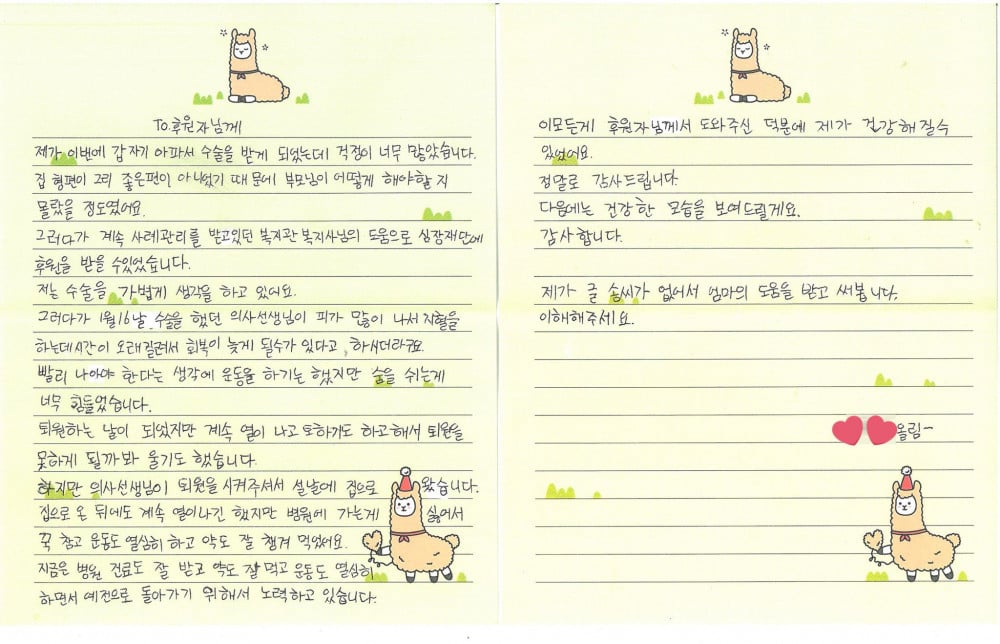 To.후원자님께
제가 이번에 갑자기 아파서 수술을 받게 되었는데 걱정이 너무 많았습니다.
집 형편이 그리 좋은편이 아니였기 때문에 부모님이 어떻게 해야할 지
몰랐을 정도였어요.
그러다가 계속 사례관리를 받고있던 복지관 복지사님의 도움으로 상장재단에
후원을 받을 수있었습니다.
저는 수술을 가볍게 생각을 하고 있어요.
그러다가 1월16날 수술을 했던 의사선생님이 피가 많이 나서 지혈을
하는데시간이 오래걸려서 회복이 늦게 될수가 있다고 하시더라구요.
빨리 나아야 한다는 생각에 운동을 하기는 했지만 숨을 쉬는게
너무 힘들었습니다.
퇴원하는 날이 되었지만 계속 열이 나고 토하기도 하고해서 퇴원을
못하게 될까봐 울기도 했습니다.
하지만 의사선생님이 퇴원을 시켜주셔서 설날에 집으로 왔습니다.
집으로 온 뒤에도 계속 열이나긴 했지만 병원에 가는게 싫어서
꾹 참고 운동도 열심히 하고 약도 잘 챙겨 먹었어요.
지금은 병원 진료도 잘 받고 약도 잘 먹고 운동도 열심히
하면서 예전으로 돌아가기 위해서 노력하고 있습니다.
이모든게 후원자님께서 도와주신 덕분에 제가 건강해질수
있었어요.
정말로 감사드립니다.
다음에는 건강한 모습을 보여드릴게요.
감사합니다.
제가 글 솜씨가 없어서 엄마의 도움을 받고 써봅니다.
이해해주세요.
올림-